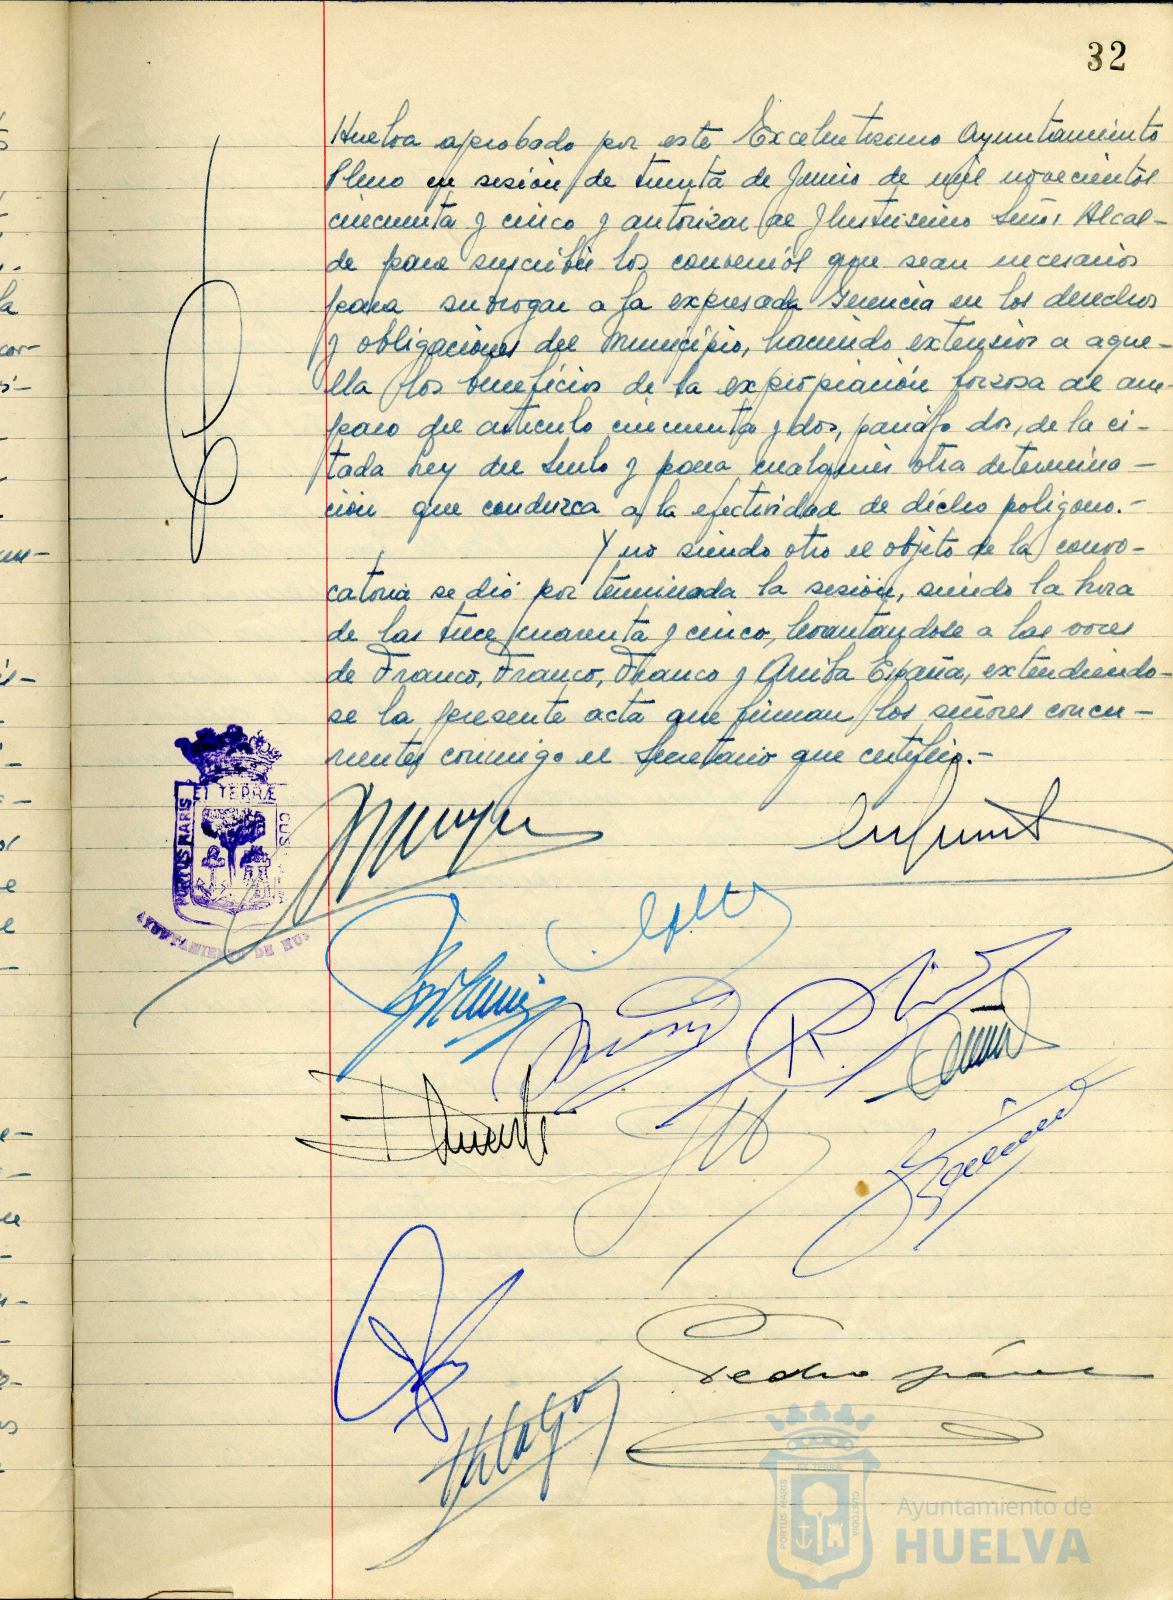 32
Huelva aprobado por este Excelentísimo Ayuntamiento
Pleno en sesión de treinta de Junio de mil novecientos
cincuenta y cinco y autorizar al Ilustrísimo Señor Alcal-
de para suscribir los convenios que sean necesarios
para subrogar a la expresada Gerencia en los derechos
y obligaciones del Municipio, haciendo extensios a aque-
lla los beneficios de la expropiación forzosa al am-
paro del artículo cincuenta y dos, párrafo dos, de la ci-
tada Ley del Suelo y para cualquier otra determina-
ción que conduzca a la efectividad de dicho polígono.-
Y no siendo otro el objeto de la convo-
catoria se dió por terminada la sesión, siendo la hora
de las trece cuarenta y cinco, levantandose a las voces
de Franco, Franco, Franco y Arriba España, extendiendo-
se la presente acta que firman los señores concu-
rrentes conmigo el Secretario que certifico.-
ET TERRÆ
PORTUS MARIS
CUS
AYUNTAMIENTO DE HU
Pedro
ET TERRÆ
PORTUS MARIS
CUSTODIA
Ayuntamiento de
HUELVA